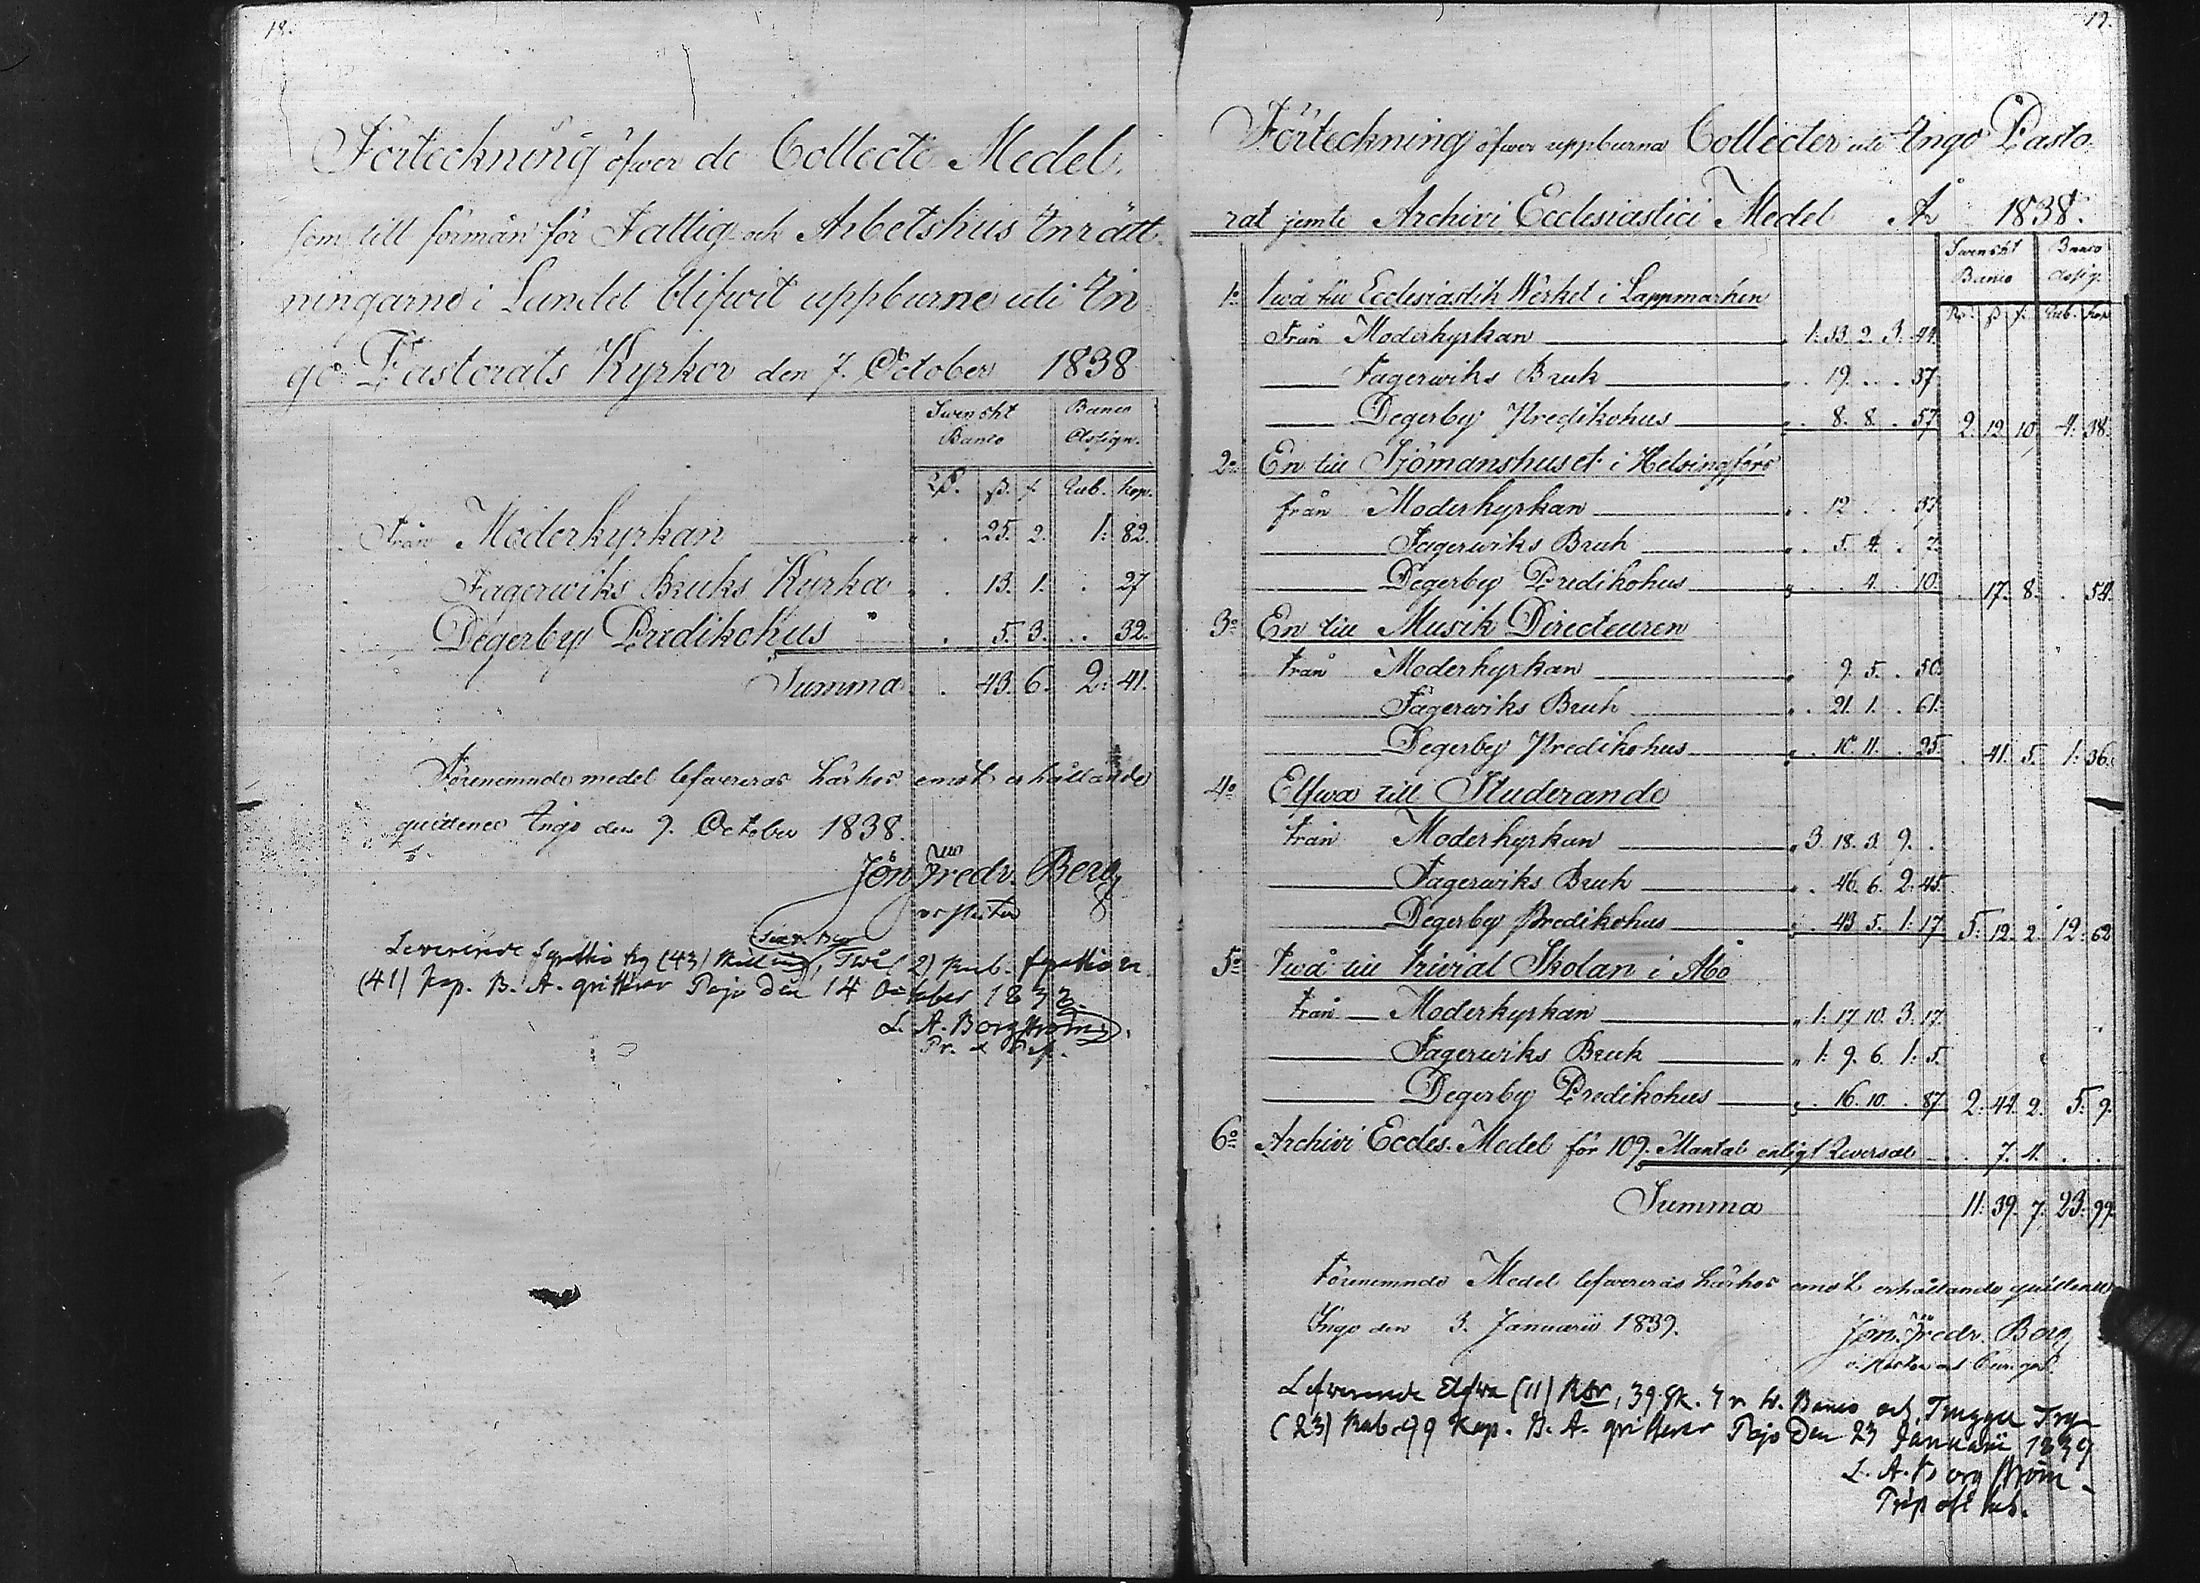 18.
Förteckning öfver de Collecte Medel
som till förmån för Fattig och Arbetshus Inrätt-
ningarne i Sundet blifwit uppburne uti In-
go Pastorats Kyrkor den 7. October 1838
Swenskt Banco
Banco Assign.
Rd. ß. r. Rub. kop.
Från Moderkyrkan . 25. 2. 1: 82.
Fagerwiks Bruks Kyrka . 13. 1. . 27
Degerby Predikohus . 5. 3. . 32.
Summa . 43. 6. 2: 41.
Förenemnde medel lefwereras härhos emot erhållande
quittence Ingo den 9. October 1838.
Jon. Fredr. Berg
(41) kop. B. A. qvitterar October
L. A. Borgström
19.
Förteckning öfwer uppburna Collecter uti Ingo Pasto-
rat jemte Archivi Ecclesiastici Medel År 1838.
Swenskt Banco
Banco Assig.
Rd. ß. r. Rub. kop
1o Twå till Ecclesiastik Werket i Lappmarken
Från Moderkyrkan 1: 13. 2. 3. 44.
Fagerwiks Bruk . 19. . . 37
Degerby Predikohus . 8. 8. . 57. 2. 12. 10. 4. 38.
2o En till Sjömanshuset i Helsingfors
från Moderkyrkan . 12 . . 37
Fagerwiks Bruk . 5. 4. . 7.
Degerby Predikohus . . 4. . 10. . 17. 8. . 54.
3o En till Musik Directeuren
Från Moderkyrkan . 9. 5. . 50.
Fagerwiks Bruk . 21. 1. . 61.
Degerby Predikohus . 10. 11. . 25. . 41. 5. 1: 36.
4o Elfwa till Studerande
Från Moderkyrkan 3. 18. 3. 9. .
Fagerwiks Bruk . 46. 6. 2. 45.
Degerby Predikohus . 43. 5. 1: 17. 5. 12. 2. 12: 62
5o Twå till Trivial Skolan i Åbo
Från Moderkyrkan 1: 17. 10. 3: 17.
Fagerwiks Bruk 1: 9. 6. 1: 5.
Degerby Predikohus . 16. 10. . 87. 2: 44. 2. 5: 9.
6o Archivi Eccles. Medel för 109. Mantal enligt Reversal . 7. 4. . .
Summa 11: 39. 7. 23: 99.
Förenemnde Medel lefwereras härhos emot erhållande quittence
Ingo den 3. Januarii 1839.
Jon. Fredr. Berg
Lefwererade Elfwa (11) Rdr, 39 sk. 7 r. Sw. Banco och
(23) Rub. 99 Kop. B. A. qvitterar den 23 Januarii 1839
L. A. Borgström